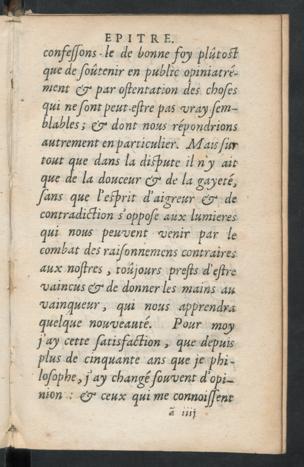 EPITRE.
confessons-le de bonne foy plûtost
que de soûtenir en public opiniatré-
ment & par ostentation des choses
qui ne sont peut-estre pas vray sem-
blables ; & dont nous répondrions
autrement en particulier. Mais sur
tout que dans la dispute il n'y ait
que de la douceur & de la gayeté,
sans que l'esprit d'aigreur & de
contradiction s'oppose aux lumieres
qui nous peuvent venir par le
combat des raisonnemens contraires
aux nostres, toûjours prests d'estre
vaincus & de donner les mains au
vainqueur, qui nous apprendra
quelque nouveauté. Pour moy
j'ay cette satisfaction, que depuis
plus de cinquante ans que je phi-
losophe, j'ay changé souvent d'opi-
nion : & ceux qui me connoissent
ã iiij